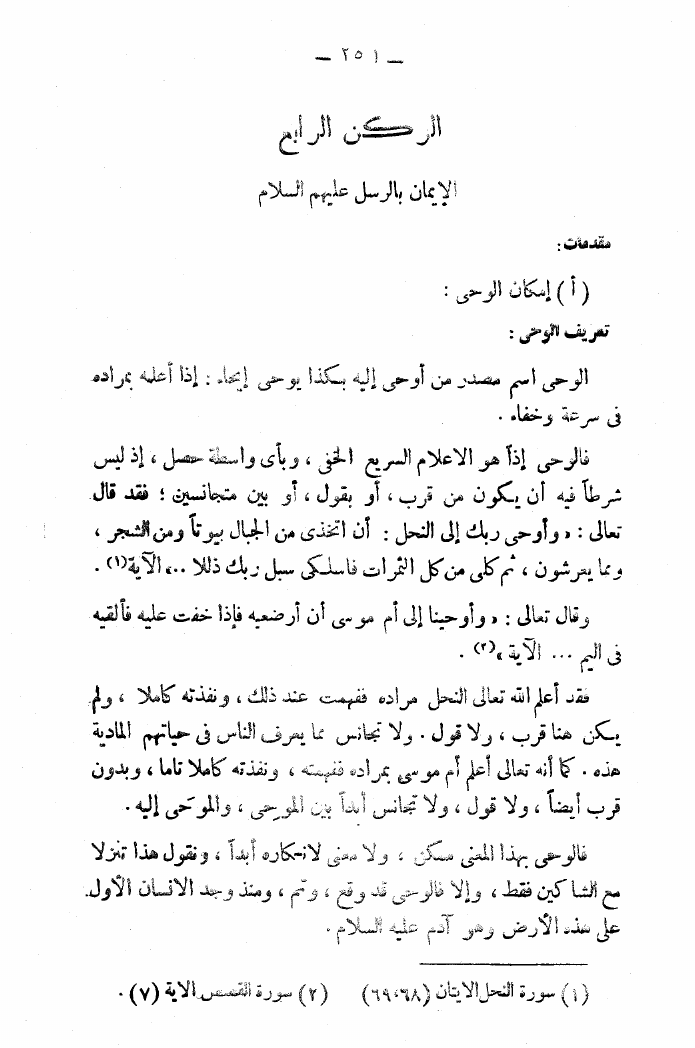 — ٢٥١ —
الركن الرابع
الإيمان بالرسل عليهم السلام
مقدمات:
( أ ) إمكان الوحى :
تعريف الوحى :
الوحى اسم مصدر من أوحى إليه بكذا يوحى إيحاء : إذا أعلمه بمراده
فى سرعة وخفاء .
فالوحى إذاً هو الاعلام السريع الخفى ، وبأى واسطة حصل ، إذ ليس
شرطاً فيه أن يكون من قرب ، أو بقول ، أو بين متجانسين ؛ فقد قال
تعالى : « وأوحى ربك إلى النحل : أن اتخذى من الجبال بيوتاً ومن الشجر ،
ومما يعرشون ، ثم كلى من كل الثمرات فاسلكى سبل ربك ذللا ..» الآية(١) .
وقال تعالى : « وأوحينا إلى أم موسى أن أرضعيه فإذا خفت عليه فألقيه
فى اليم ... الآية »(٢) .
فقد أعلم الله تعالى النحل مراده ففهمت عند ذلك ، ونفذته كاملا ، ولم
يكن هنا قرب ، ولا قول . ولا تجانس مما يعرف الناس فى حياتهم المادية
هذه . كما أنه تعالى أعلم أم موسى بمراده ففهمته ، ونفذته كاملا تاما ، وبدون
قرب أيضاً ، ولا قول ، ولا تجانس أبداً بين الموحِى ، والموحَى إليه .
فالوحى بهذا المعنى ممكن ، ولا معنى لانكاره أبداً ، ونقول هذا تنزلا
مع الشاكين فقط ، وإلا فالوحى قد وقع ، وتم ، ومنذ وجد الانسان الأول
على هذه الأرض وهو آدم عليه السلام .
(١) سورة النحل الايتان (٦٨،٦٩) (٢) سورة القصص الاية (٧) .